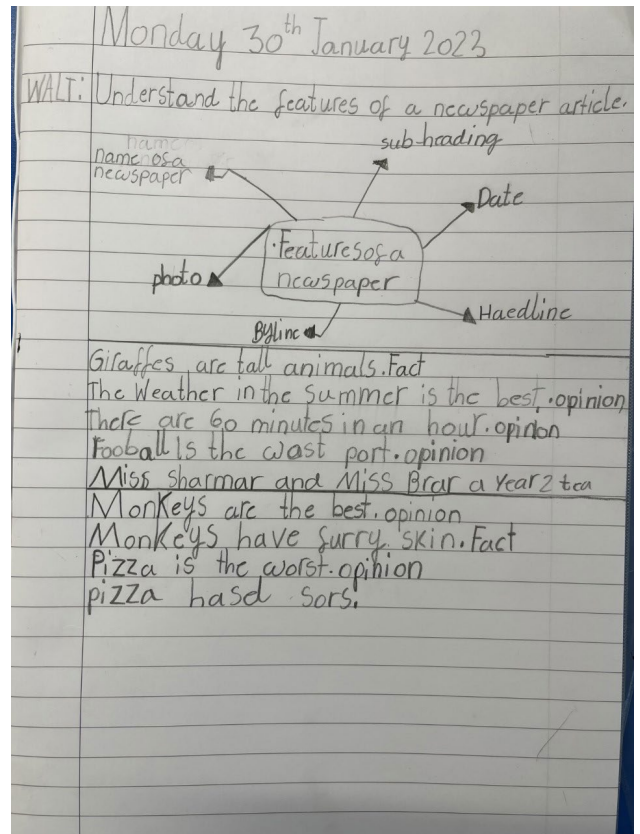 Monday 30th January 2023
WALT: Understand the features of a newspaper article.
name of a
newspaper
sub heading
Date
photo
.Features of a
newspaper
Byline
Haedline
Giraffes are tall animals.Fact
The Weather in the Summer is the best.opinion
There are 60 minutes in an hour.opinion
Fooball Is the wast port.opinion
Miss Sharmar and Miss Brar a Year 2 tea
Monkeys are the best.opinion
Monkeys have furry skin.Fact
Pizza is the worst.opinion
pizza hasd sors.